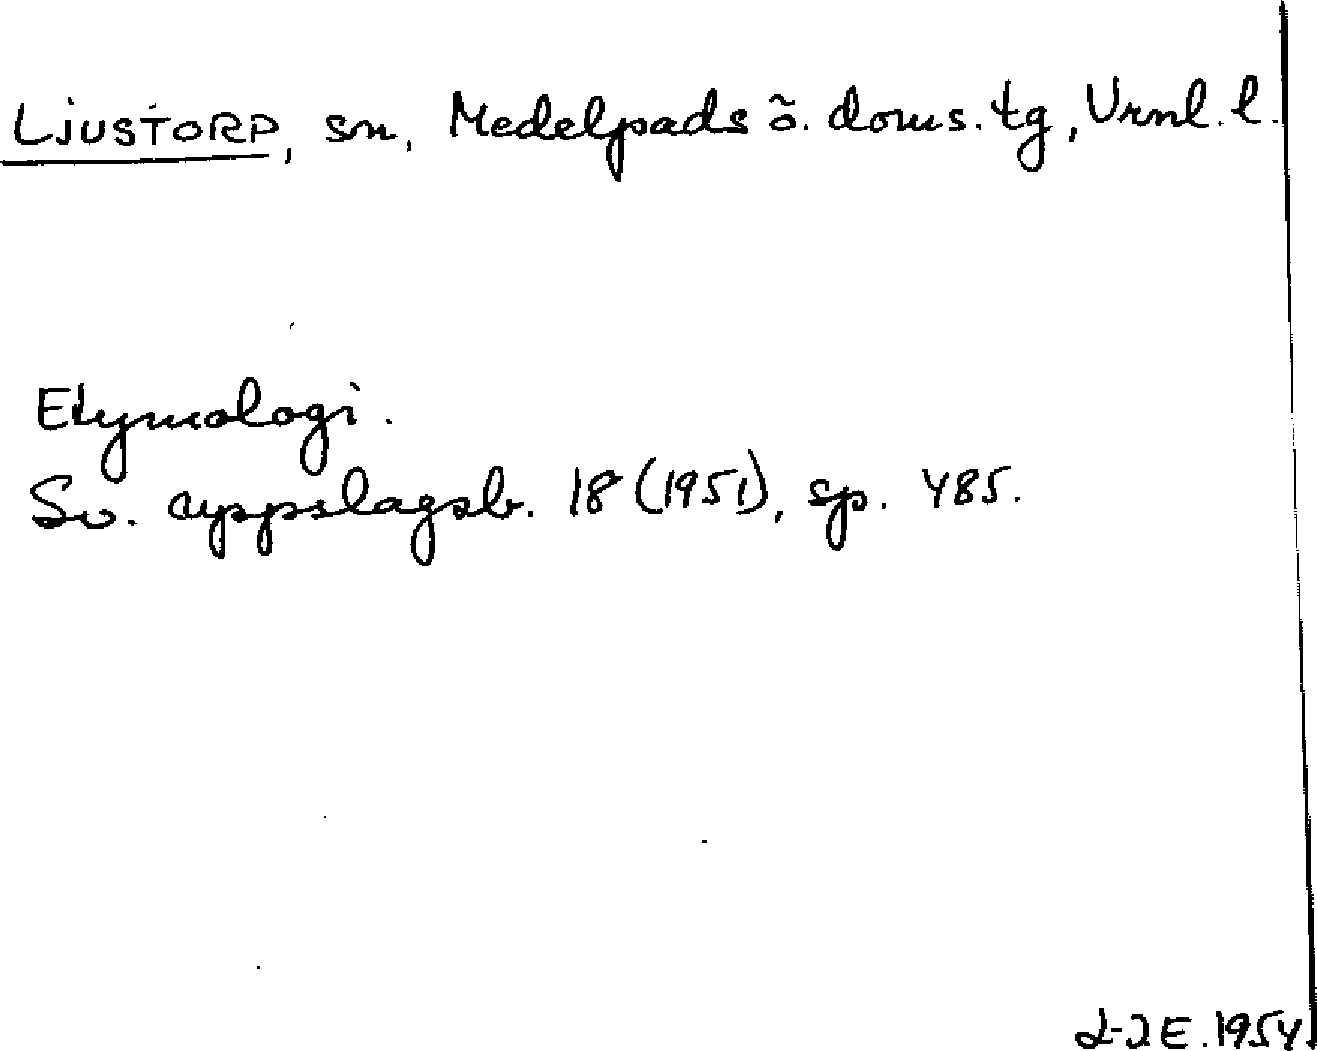 LJUSTORP, sn, Medelpads ö. doms. tg, Vrnl. l.
Etymologi.
Sv. uppslagsb. 18 (1951), sp. 485.
L-J E. 1954